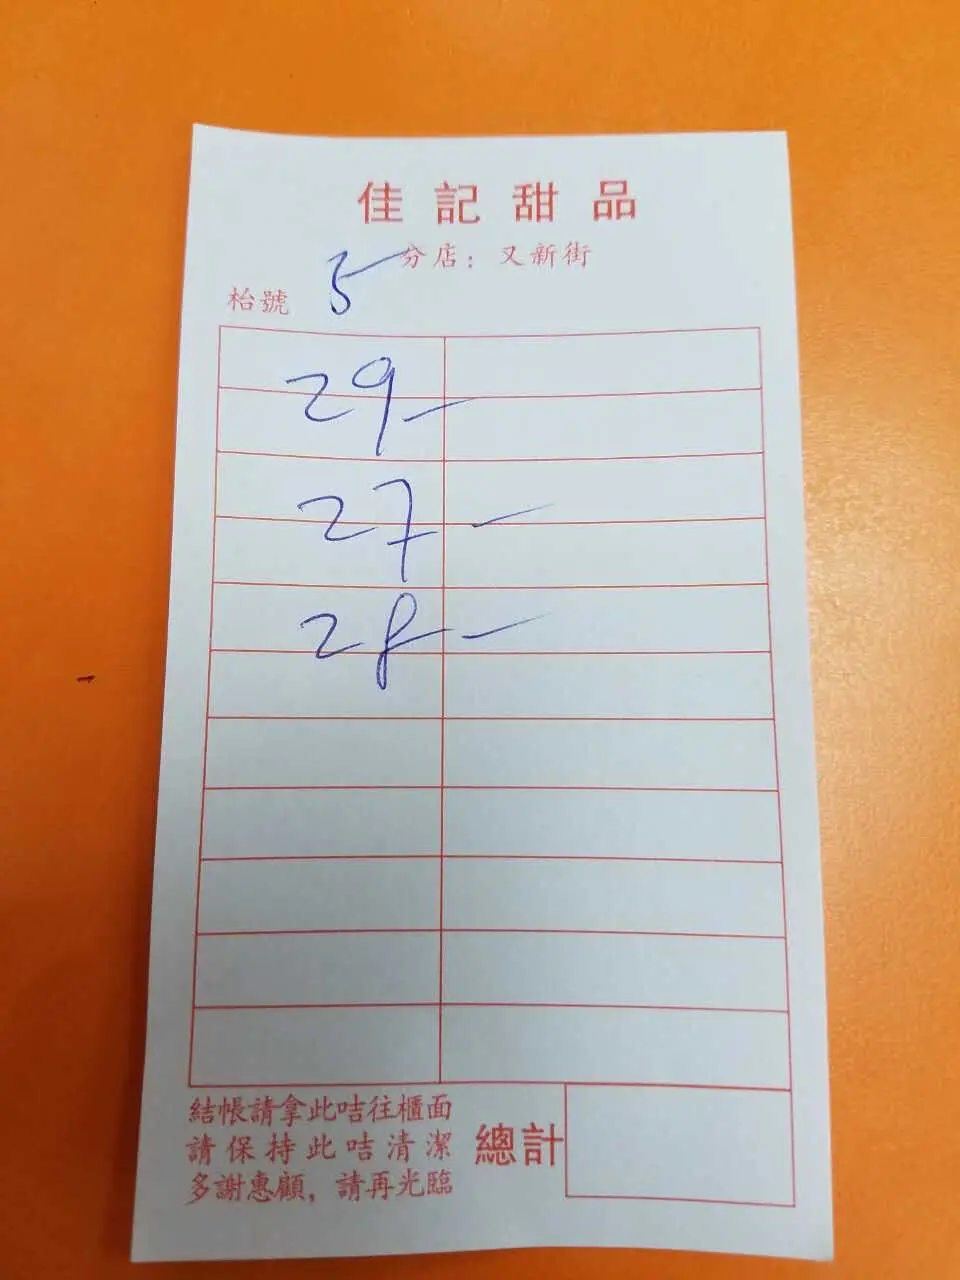 佳記甜品
分店：又新街
枱號 5
29 –
27 –
28 –
結帳請拿此咭往櫃面
請保持此咭清潔
多謝惠顧，請再光臨
總計